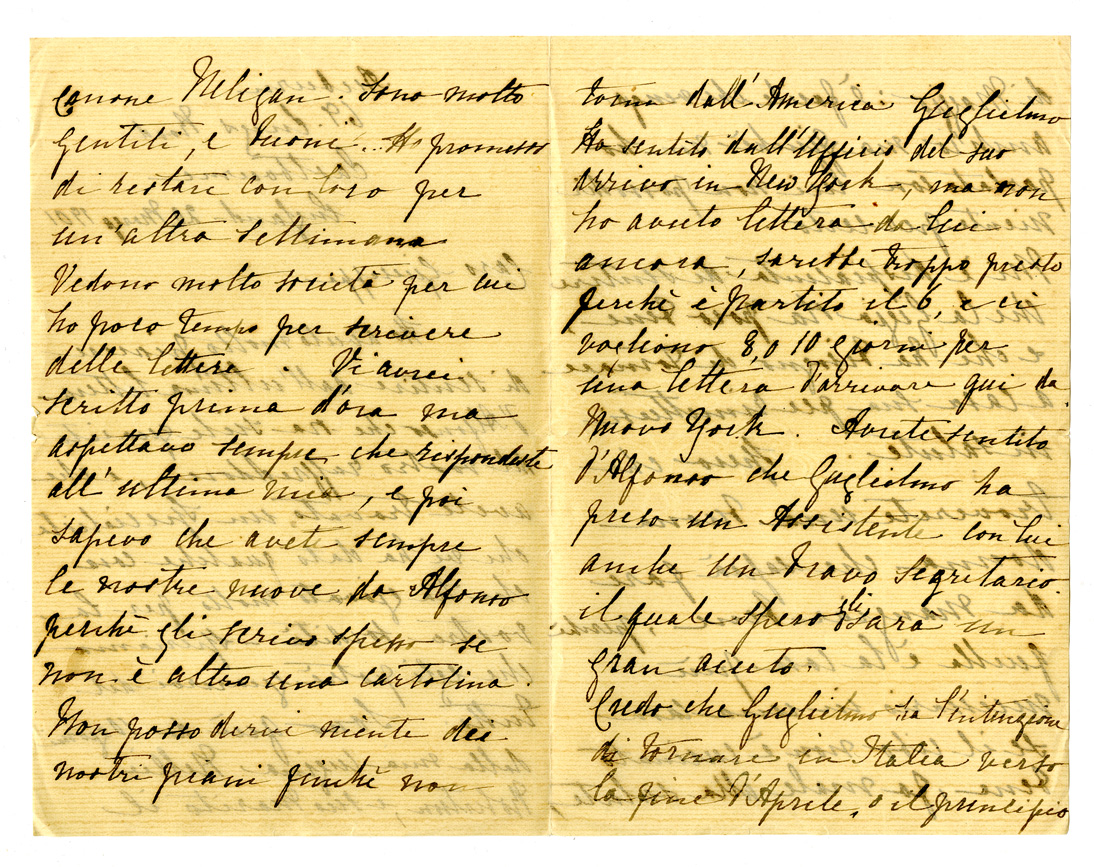 Canone Neligan. Sono molto
gentili, e buoni... Ho promesso
di restare con loro per
un'altra settimana
Vedono molto società per cui
ho poco tempo per scrivere
delle lettere. Vi avrei
scritto prima d'ora ma
aspettavo sempre che rispondeste
all'ultima mia, e poi
sapevo che avete sempre
le nostre nuove da Alfonso
perchè gli scrivo spesso se
non è altro una cartolina.
Non posso dervi niente dei
nostri piani finchè non
torna dall'America Guglielmo
Ho sentito dall'Ufficio del suo
arrivo in New York, ma non
ho avuto lettera da lui
ancora, sarebbe troppo presto
perchè è partito il 6, e ci
vogliono 8, o 10 giorni per
una lettera d'arrivare qui da
Nuovo York. Avrete sentito
d'Alfonso che Guglielmo ha
preso un Assistente con lui
anche un bravo segretario.
il quale spero gli sarà un
gran aiuto.
Credo che Guglielmo ha l'intenzione
di tornare in Italia verso
la fine d'Aprile, o il principio